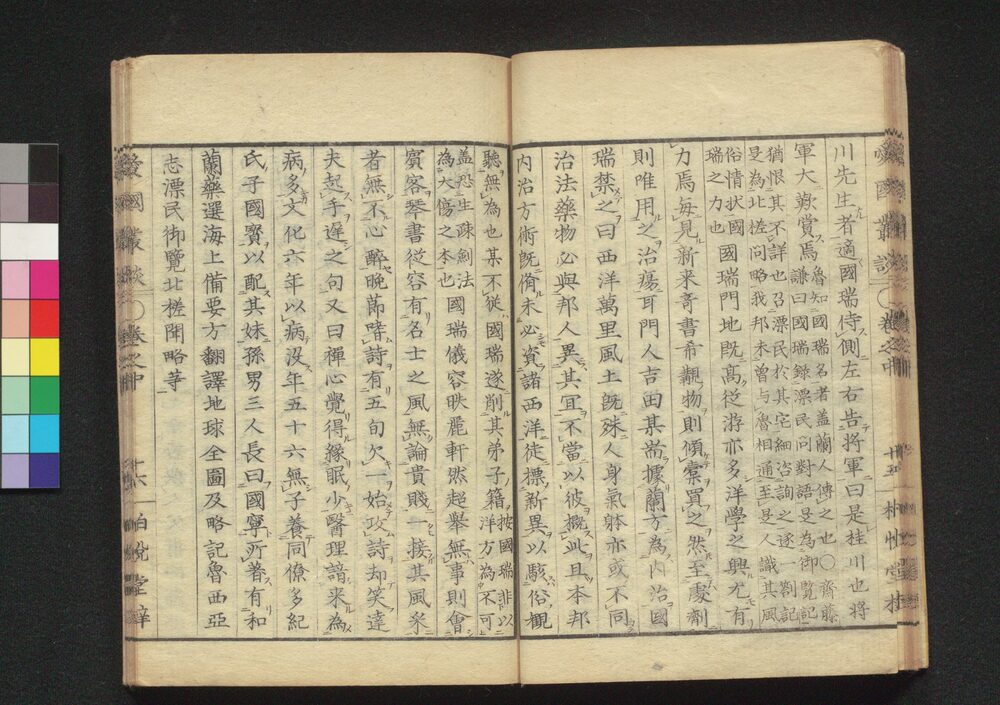 川先生者適國瑞侍側左右告將軍曰是桂川也將
軍大歎賞焉
魯知國瑞名者盖蘭人傳之也〇齋藤
謙曰國瑞錄漂民問對語是為御覽記
猶恨其不詳也召漂民於其宅細咨詢之逐一劄記
是為北槎問略我邦未曾與魯相通至是人識其風
俗情狀國
瑞之力也
國瑞門地既高從游亦多洋學之興尤有
力焉每見新来奇書希覯物則傾橐買之然至處劑
則唯用之治瘍耳門人吉田某嘗據蘭方為內治國
瑞禁之曰西洋萬里風土既殊人身氣躰亦或不同
治法藥物必與邦人異其宜不當以彼概此且本邦
內治方術既備未必資諸西洋徒摽新異以駭俗觀
聽無為也某不從國瑞遂削其弟子籍
按國瑞非以
洋方為不可
盖恐生疎劍法
為大傷之本也
國瑞儀容昳麗軒然超舉無事則會
賓客琴書從容有名士之風無論貴賤一接其風采
者無不心醉晚節嗜詩有五旬欠一始攻詩却笑達
夫起手遲之句又曰禪心覺得緣眠少醫理諳来為
病多文化六年以病沒年五十六無子養同僚多紀
氏子國賢以配其妹孫男三人長曰國寧所著有和
蘭藥選海上備要方翻譯地球全圖及略記魯西亞
志漂民御覽北槎聞略等
愛國叢談
〇卷之中
十五
愛國叢談
〇卷之中
十六